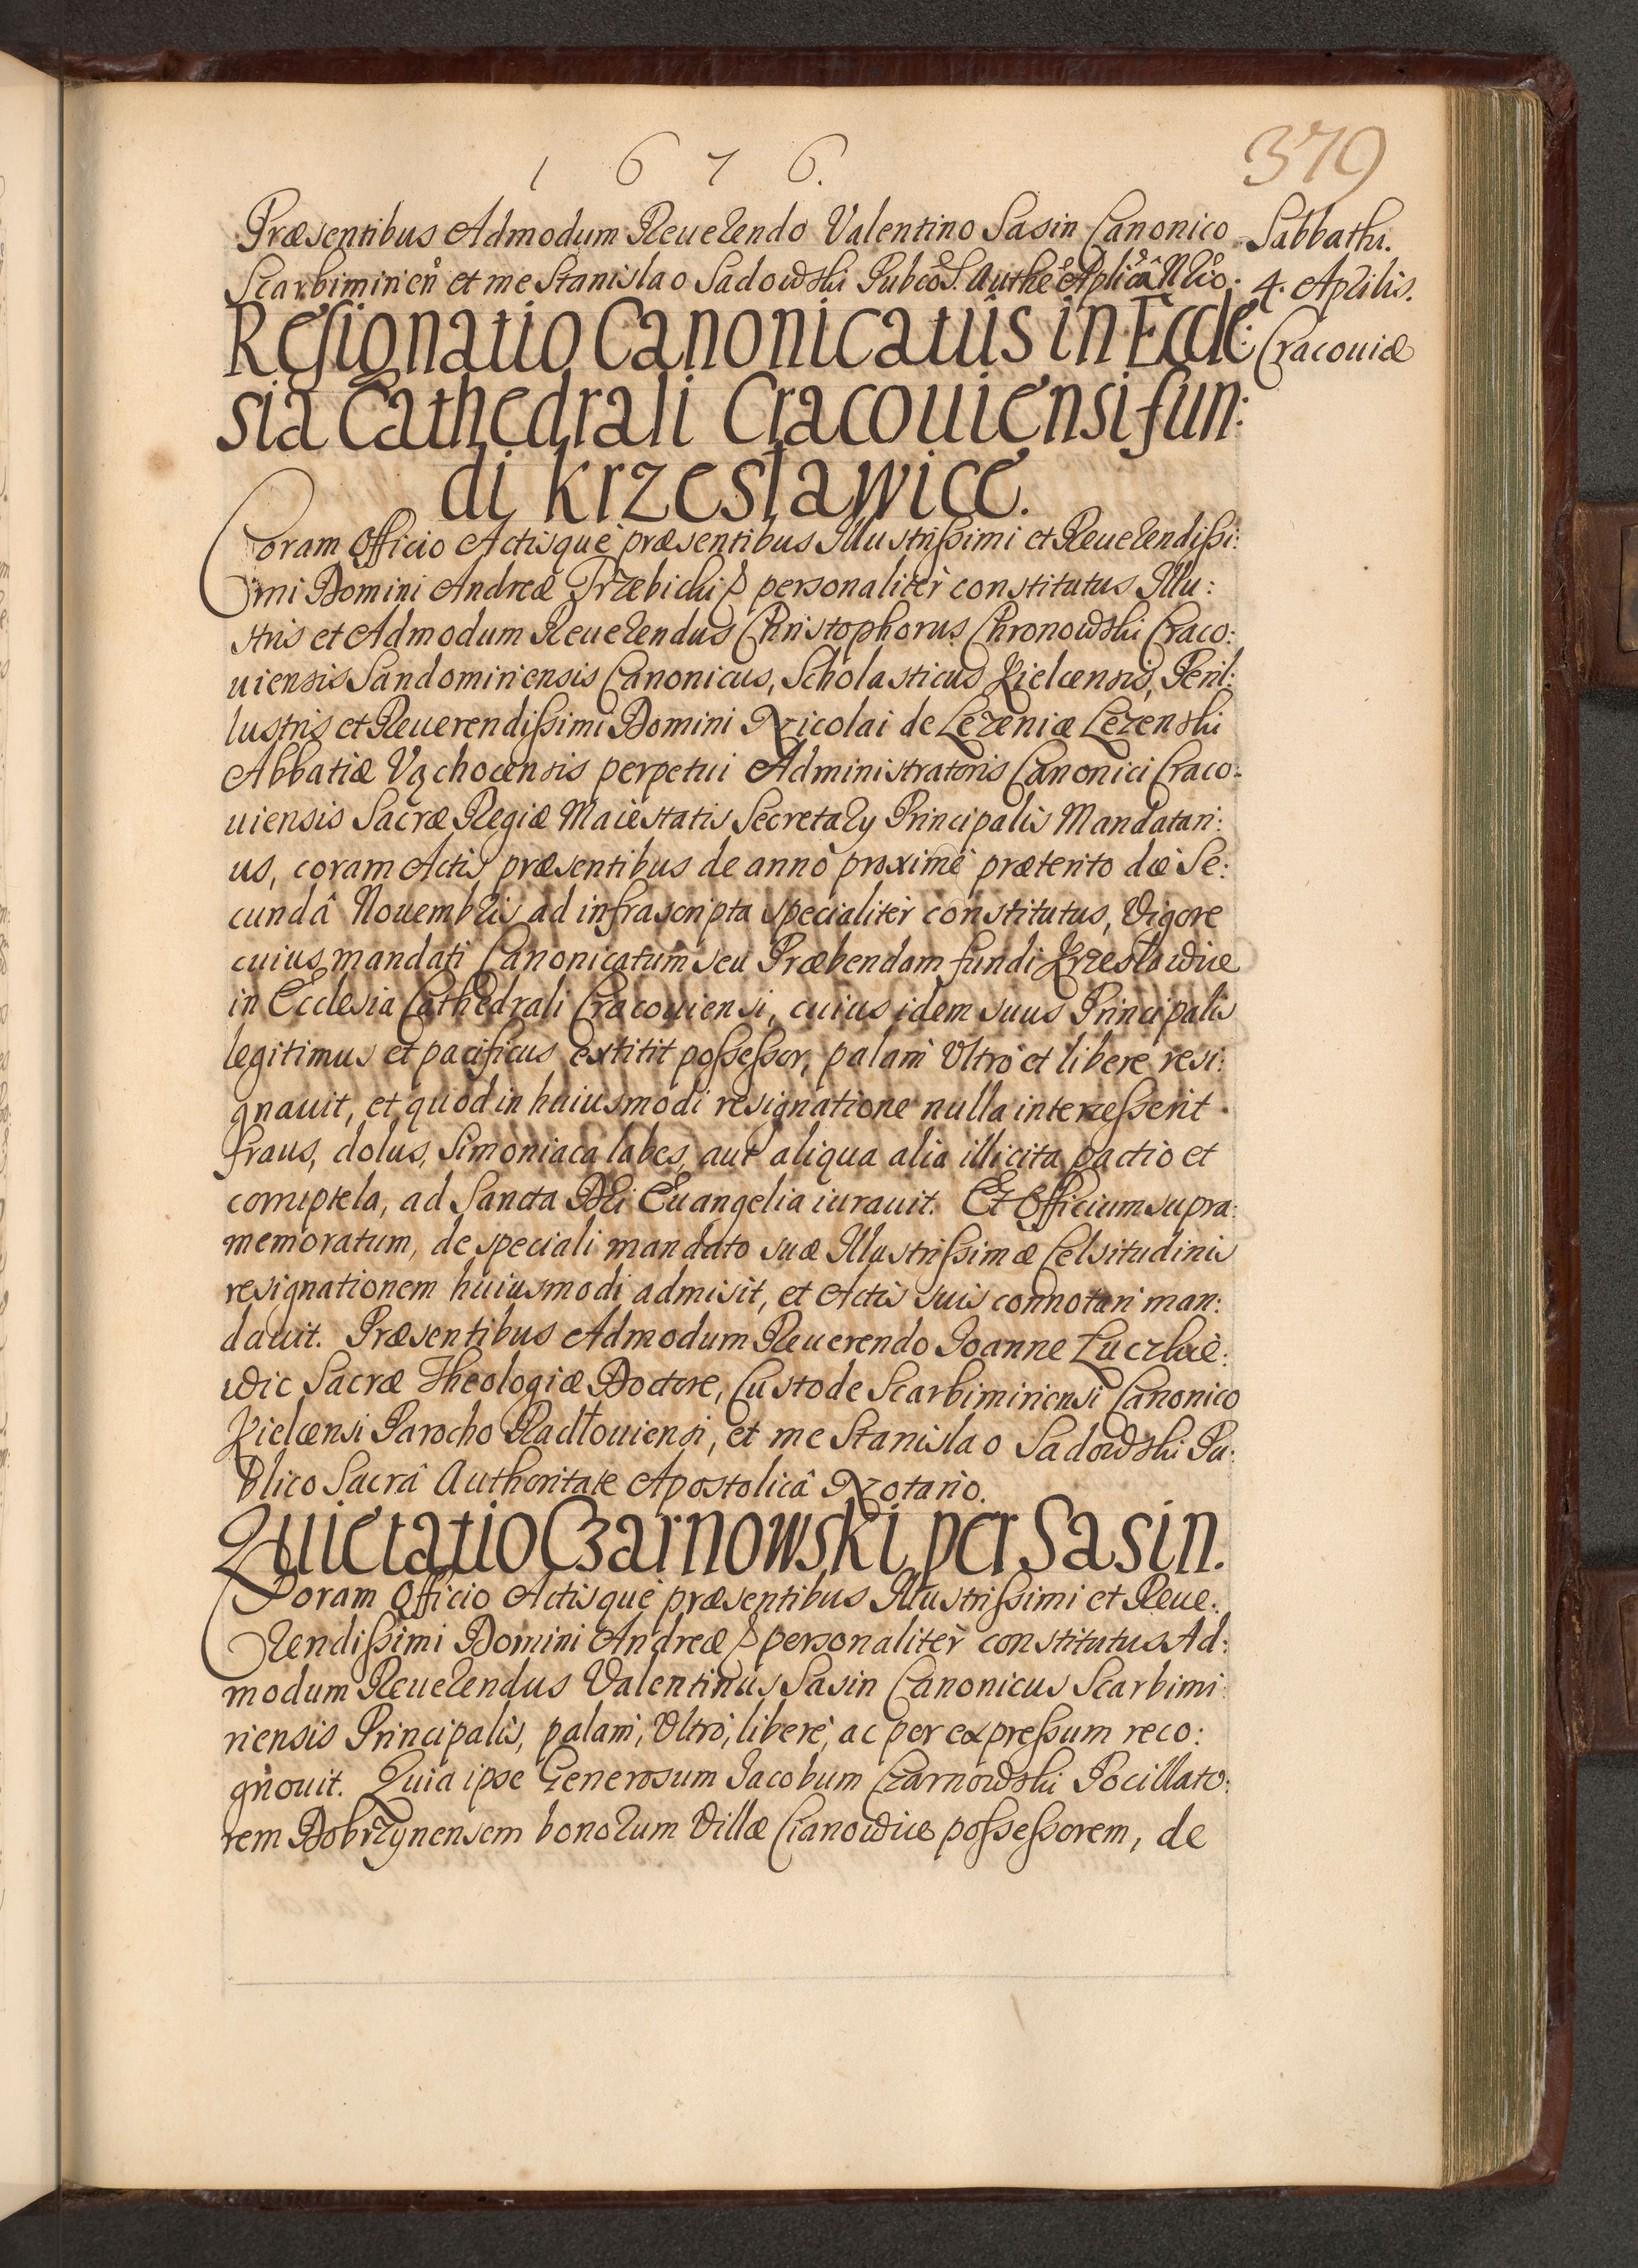 1 6 7 6.
379
Præsentibus Admodum Reuerendo Valentino Sasin Canonico
Scarbimirień et me Stanislao Sadowski Pubco S. Authe Aplicâ Nrio.
Sabbathi.
4. Aprilis.
Cracouiæ
Resignatio Canonicatus in Eccle:
sia Cathedrali Cracouiensi fun:
di Krzesławice.
Coram Officio Actisque præsentibus Illustrissimi et Reuerendissi:
mi Domini Andreæ Trzebicki & personaliter constitutus Illu:
stris et Admodum Reuerendus Christophorus Chronowski Craco:
uiensis Sandomiriensis Canonicus, Scholasticus Kielcensis, Peril:
lustris et Reuerendissimi Domini Nicolai de Lezeniæ Lezenski
Abbatiæ Vąchocensis perpetui Administratoris Canonici Craco:
uiensis Sacræ Regiæ Maiestatis Secretary Principalis Mandatari:
us, coram Actis præsentibus de anno proximè præterito die Se:
cundâ Nouembris ad infrascripta specialiter constitutus, Vigore
cuius mandati Canonicatum seu Præbendam fundi Krzesławice
in Ecclesia Cathedrali Cracouiensi, cuius idem suus Principalis
legitimus et pacificus extitit possessor, palam Vltro et libere resi:
gnauit, et quod in huiusmodi resignatione nulla intercesserit
fraus, dolus, simoniaca labes, aut aliqua alia illicita pactio et
corruptela, ad Sancta DEi Euangelia iurauit. Et Officium supra:
memoratum, de speciali mandato suæ Illustrissimæ Celsitudinis
resignationem huiusmodi admisit, et Actis suis connotari man:
dauit. Præsentibus Admodum Reuerendo Ioanne Łuczkie:
wic Sacræ Theologiæ Doctore, Custode Scarbimiriensi Canonico
Kielcensi Parocho Radłouiensi, et me Stanislao Sadowski Pu:
blico Sacrâ Authoritate Apostolicâ Notario.
Quietatio Czarnowski per Sasin.
Coram Officio Actisque præsentibus Illustrissimi et Reue:
rendissimi Domini Andreæ & personaliter constitutus Ad:
modum Reuerendus Valentinus Sasin Canonicus Scarbimi
riensis Principalis, palam, Vltro, libere, ac per expressum reco:
gnouit. Quia ipse Generosum Iacobum Czarnowski Pocillato:
rem Dobrzynensem bonorum Villæ Cianowice possessorem, de